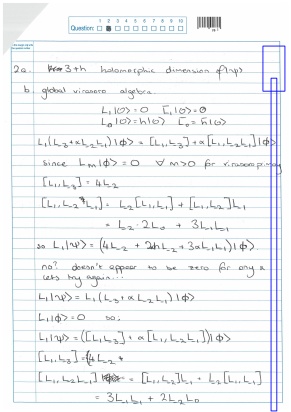 Question: 1 2 3 4 5 6 7 8 9 10
2a. 3+h holomorphic dimension of |ψ⟩
b. global virasoro algebra.
L₁|0⟩=0 L̄₁|0⟩=0
L₀|0⟩=h|0⟩ L̄₀=h̄|0⟩
L₁(L₃+αL₂L₁)|ϕ⟩ = [L₁L₃]+α[L₁,L₂L₁]|ϕ⟩
since Lₘ|ϕ⟩=0 ∀ m>0 for virasoro primary
[L₁,L₃] = 4L₂
[L₁,L₂L₁] = L₂[L₁,L₁] + [L₁,L₂]L₁
= L₂.2L₀ + 3L₁L₁
so L₁|ψ⟩=(4L₂+2αhL₂+3αL₁L₁)|ϕ⟩
no? doesn't appear to be zero for any α
lets try again...
L₁|ψ⟩ = L₁(L₃+αL₂L₁)|ϕ⟩
L₁|ϕ⟩=0 so:
L₁|ψ⟩=([L₁L₃]+α[L₁,L₂L₁])|ϕ⟩
[L₁,L₃]=(4L₂+
[L₁,L₂L₁] = [L₁,L₂]L₁ + L₂[L₁,L₁]
= 3L₁L₁+2L₂L₀